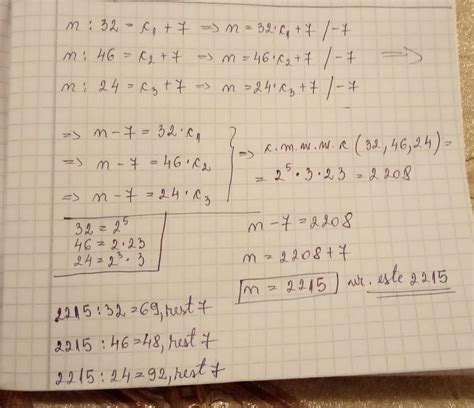 n : 32 = c₁ + 7 => n = 32·c₁ + 7 / -7
n : 46 = c₂ + 7 => n = 46·c₂ + 7 / -7 =>
n : 24 = c₃ + 7 => n = 24·c₃ + 7 / -7
=> n - 7 = 32·c₁
=> n - 7 = 46·c₂
=> n - 7 = 24·c₃
=> c.m.m.m.c (32, 46, 24) =
= 2⁵ · 3 · 23 = 2208
32 = 2⁵
46 = 2·23
24 = 2³·3
n - 7 = 2208
n = 2208 + 7
n = 2215 nr. este 2215
2215 : 32 = 69, rest 7
2215 : 46 = 48, rest 7
2215 : 24 = 92, rest 7